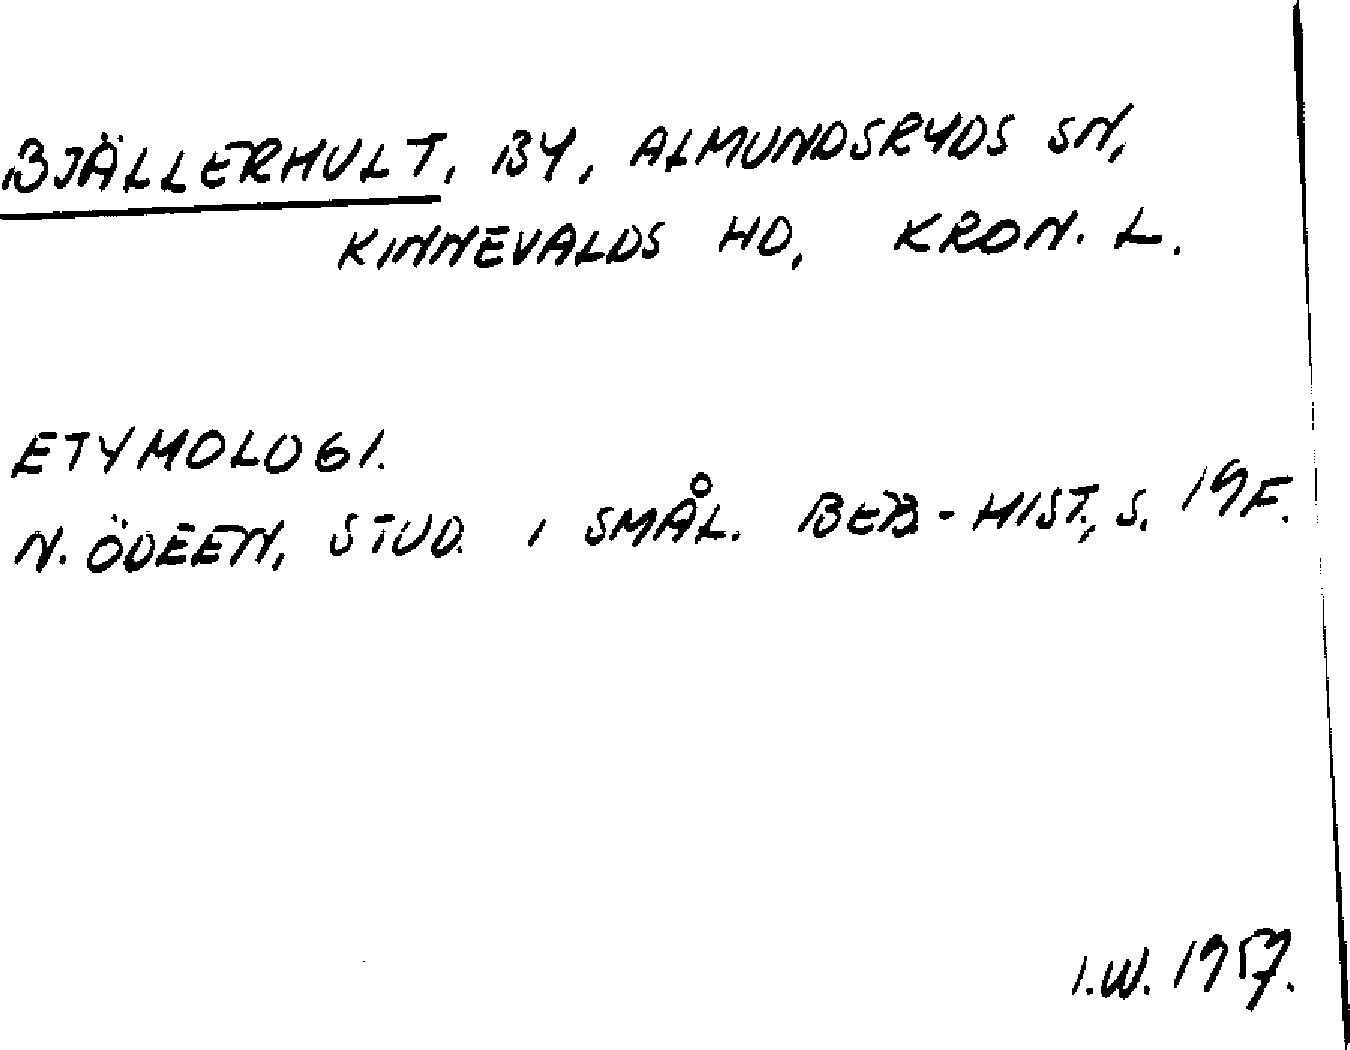 BJÄLLERHULT, BY, ALMUNDSRYDS SN,
KINNEVALDS HD, KRON. L.
ETYMOLOGI.
N. ÖDEEN, STUD. I SMÅL. BEB-HIST., S. 19F.
I.W. 1957.